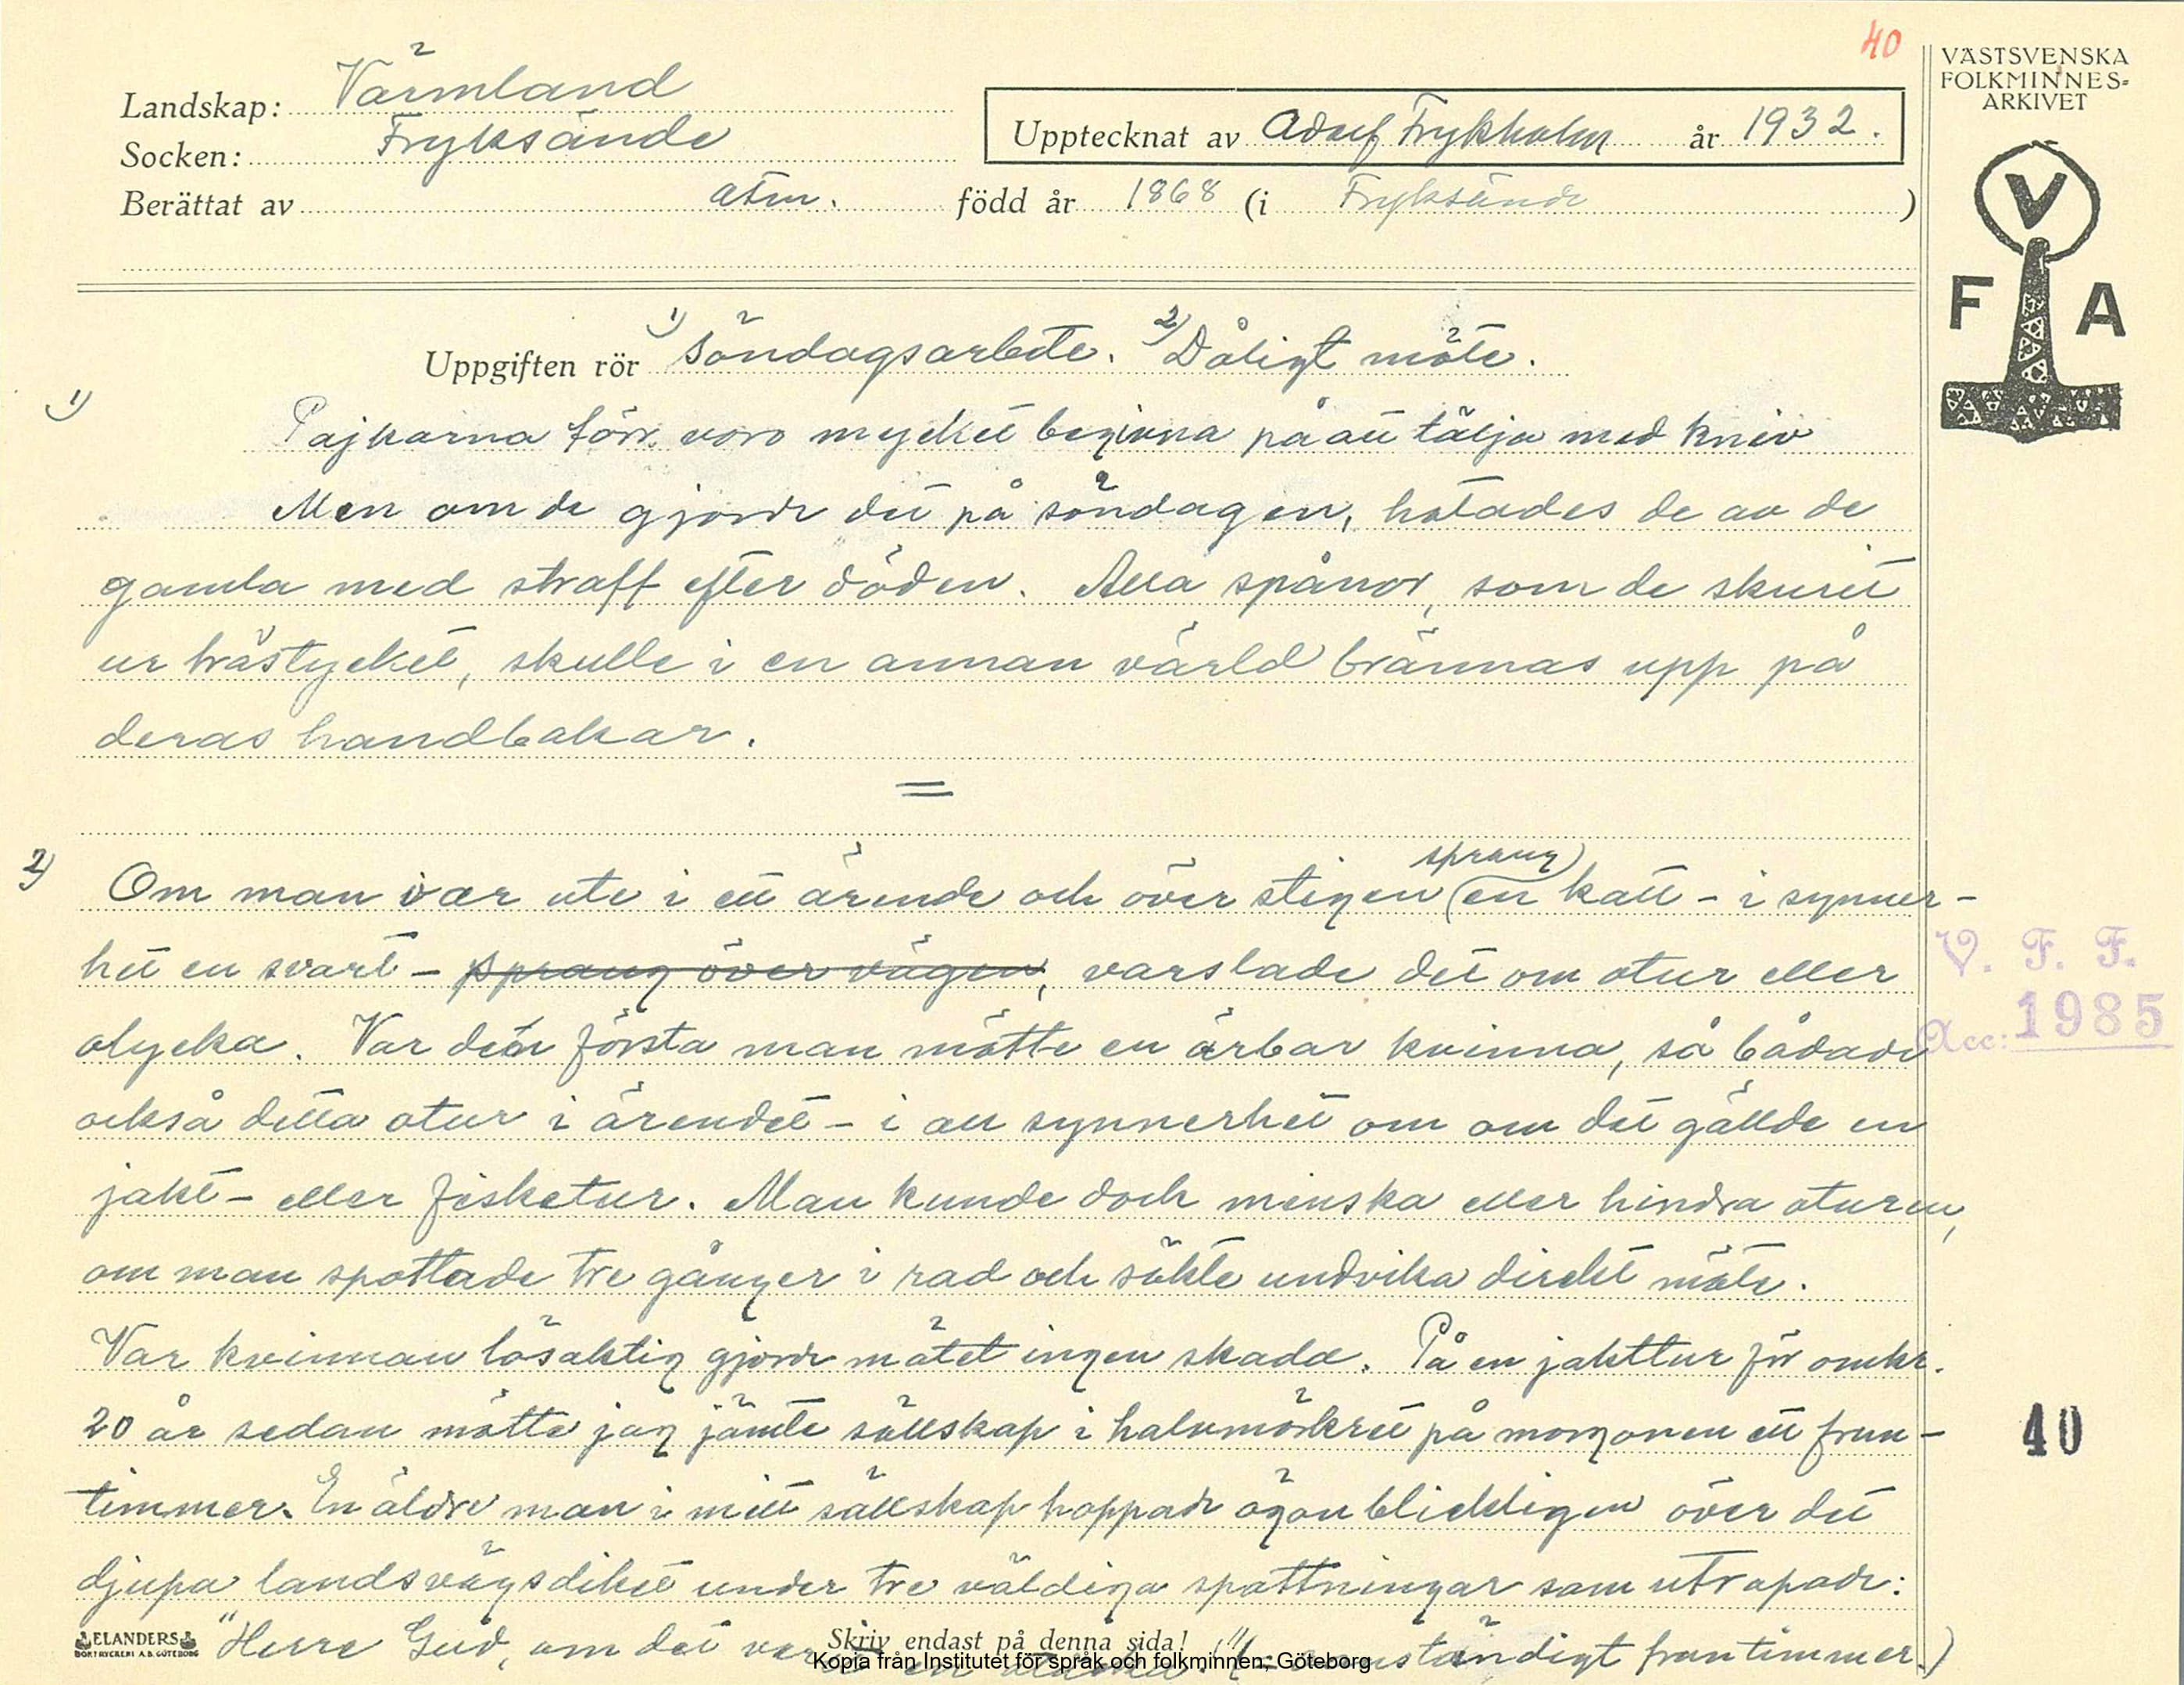 40
VÄSTSVENSKA
FOLKMINNES-
ARKIVET
Landskap: Värmland
Socken: Fryksände
Upptecknat av Adolf Frykholm år 1932.
Berättat av atm. född år 1868 (i Fryksände)
V
F A
Uppgiften rör 1) Söndagsarbete. 2) Dåligt möte.
1) Pojkarna förr voro mycket begivna på att tälja med kniv
Men om de gjorde det på söndagen, hotades de av de
gamla med straff efter döden. Alla spånor, som de skurit
ur trästycket, skulle i en annan värld brännas upp på
deras handbakar.
2) Om man var ute i ett ärende och över stigen sprang en katt - i synner-
het en svart - sprang över vägen, varslade det om otur eller
olycka. Var den första man mötte en ärbar kvinna, så bådade
också detta otur i ärendet - i all synnerhet om om det gällde en
jakt- eller fisketur. Man kunde dock minska eller hindra oturen,
om man spottade tre gånger i rad och sökte undvika direkt möte.
Var kvinnan lösaktig gjorde mötet ingen skada. På en jakttur för omkr.
20 år sedan mötte jag jämte sällskap i halvmörkret på morgonen ett frun-
timmer. En äldre man i mitt sällskap hoppade ögonblickligen över det
djupa landsvägsdiket under tre väldiga spottningar som utropade:
"Herre Gud, om det var en (= anständigt fruntimmer.)
V. F. F.
Acc: 1985
40
ELANDERS
BOKTRYCKERI A.B. GÖTEBORG
Skriv endast på denna sida!
Kopia från Institutet för språk och folkminnen, Göteborg